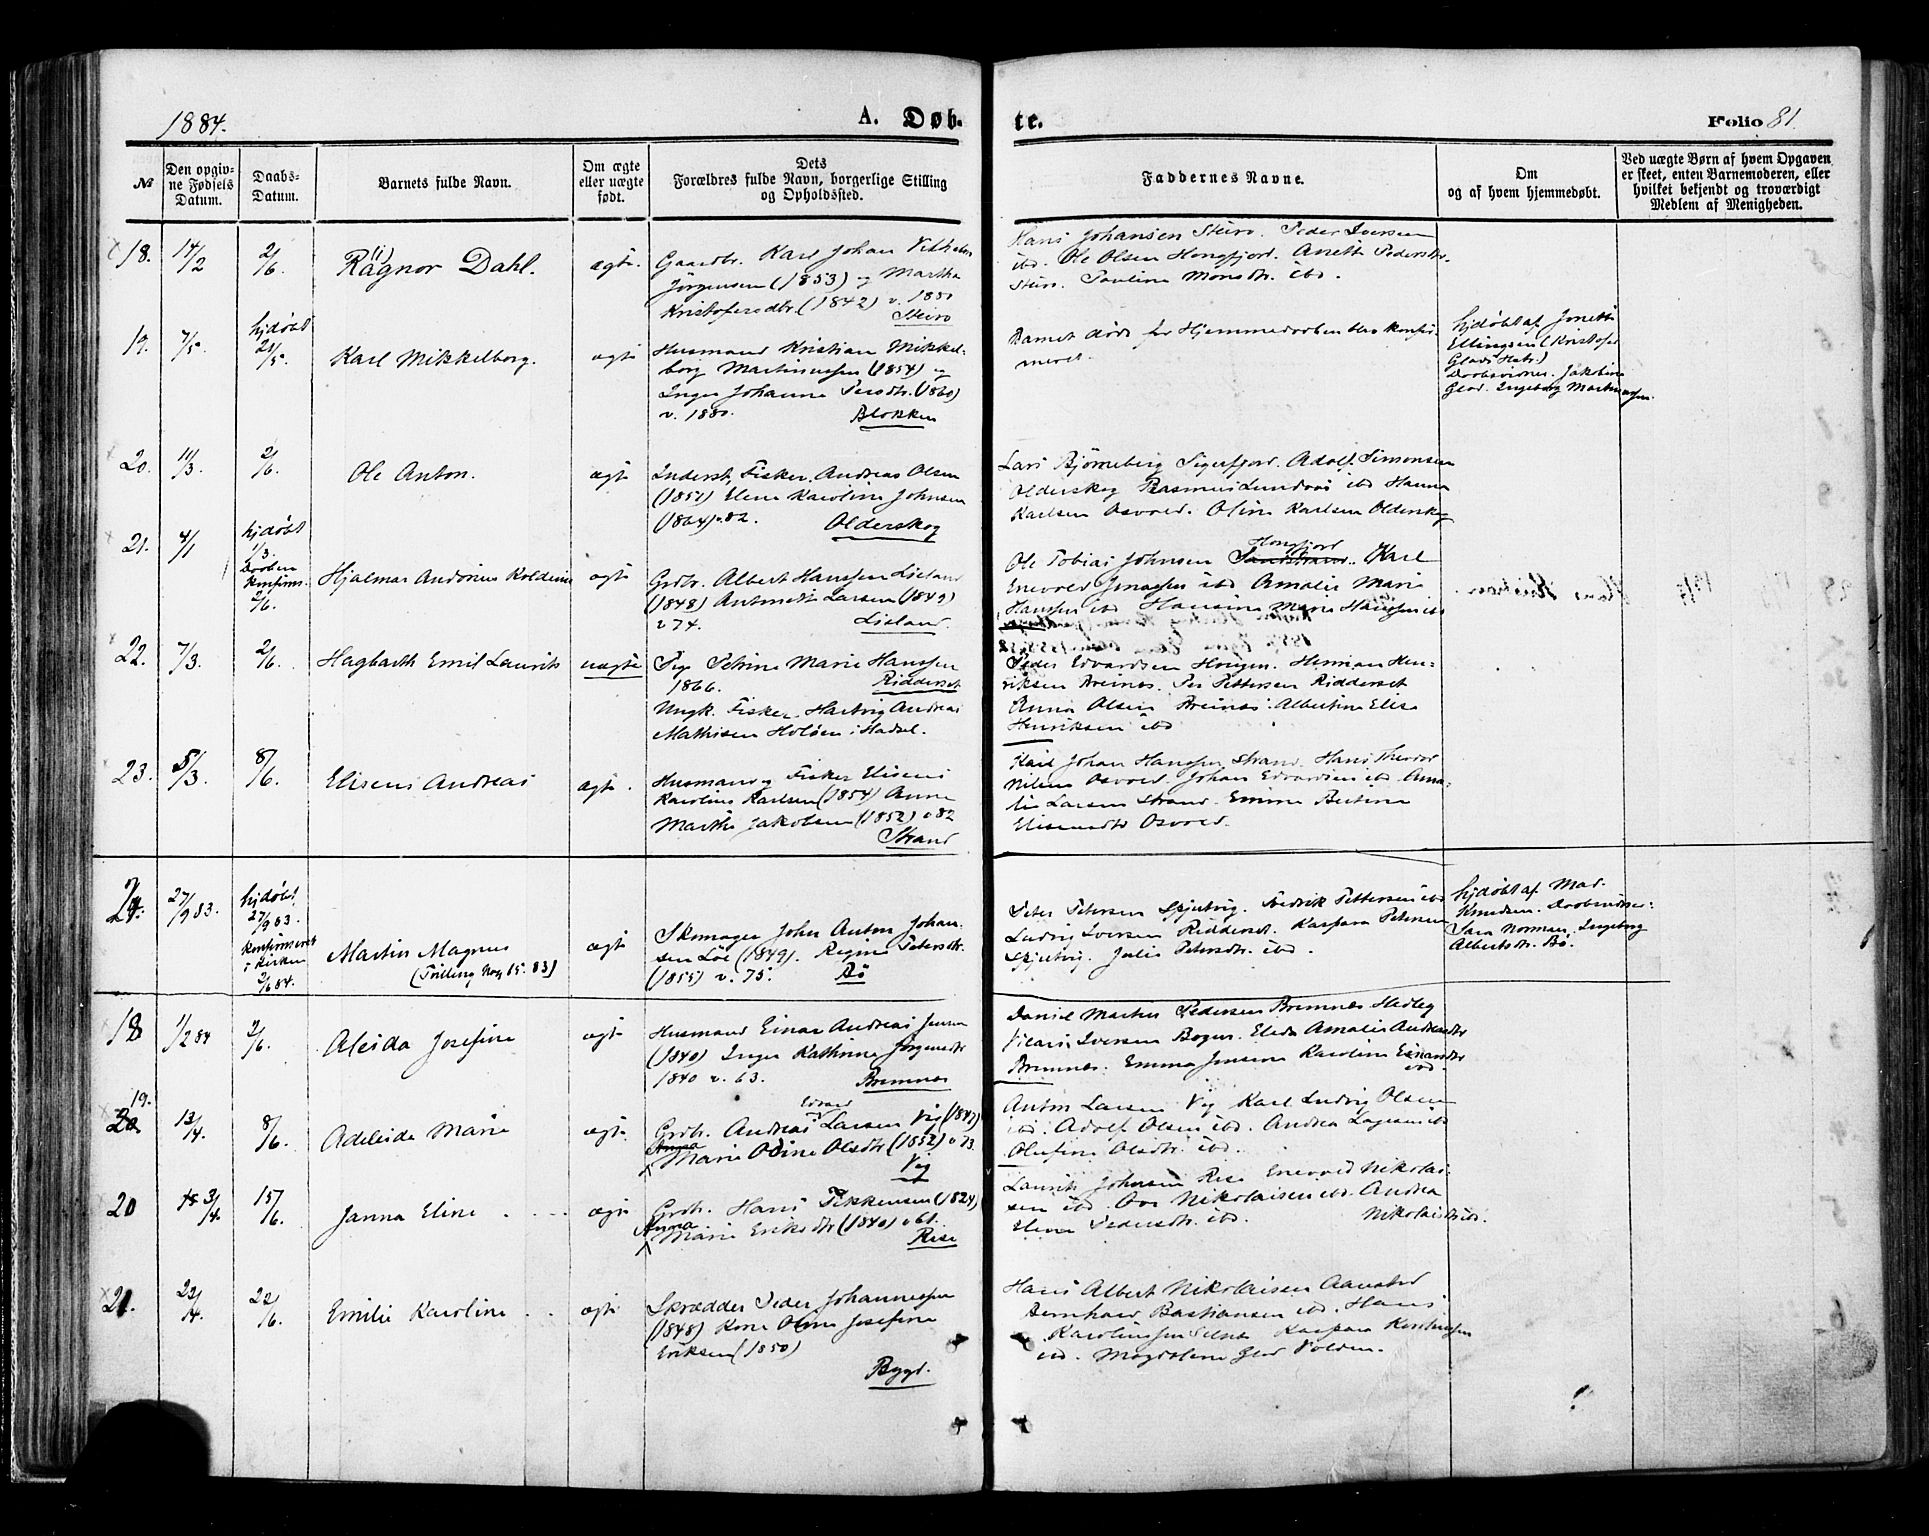 1884.
A. Døb-
te.
Folio 81.
№
Den opgiv-
ne Fødsels
Datum.
Daabs-
Datum.
Barnets fulde Navn.
Om ægte
eller uægte
født.
Dets
Forældres fulde Navn, borgerlige Stilling
og Opholdssted.
Faddernes Navne.
Om
og af hvem hjemmedøbt.
Ved uægte Børn af hvem Opgaven
er skeet, enten Barnemoderen, eller
hvilket bekjendt og troværdigt
Medlem af Menigheden.
18.
14/2
2/6.
Ragnor Dahl.
ægte
Gaardbr. Karl Johan
Jörgensen (1853) og Martha
Kristofersdtr (1842) v. 1880
Steiro
Hans Johansen Steiro. Peder Iversen
ibd. Ole Olsen Hongfjord. Anette Pedersdtr.
Steiro. Pauline Monsdtr. ibd.
19.
7/5.
hjdøbt
21/5.
Karl Mikkelborg.
ægte
Husmand Kristian Mikkel-
borg Martinussen (1854) og
Inger Johanna Persdtr. (1860)
v. 1880.
Blokken
Barnet døde før Hjemmedaaben blev konfir-
meret.
hjdøbt af Jonette
Ellingsen (Kristofer
Glads Hstr.)
Daabsvidner. Jakobine
Glad. Ingeborg Martinussen.
20.
11/3.
2/6.
Ole Anton.
ægte
Inderst, Fisker. Andreas Olsen
(1857) Elene Karoline Johnsen
(1864) v. 82.
Olderskog
Lars Bjørneberg Sigerfjord. Adolf Simonsen
Olderskog Rasmus Lundvoi ibd Hanna
Karlsen Osvold. Oline Karlsen Olderskog
21.
4/1
hjdøbt
1/3.
Daaben
konfirms.
2/6.
Hjalmar Andorius Koldevin
ægte
Grdbr. Albert Hanssen Liland
(1848) Antonette Larsen (1849)
v 74.
Liland.
Hongfjord
Ole Tobias Johnsen Karl
Enevold Jonassen ibd Amalie Marie
Hanssen ibd Hansine Marie Hanssen ibd
22.
7/3.
2/6.
Hagbarth Emil Laurits
uægte
Pige Petrine Marie Hanssen
1866.
Ridderset
Ungk. Fisker. Hartvig Andreas
Mathisen Holöen i Hadsel.
Peder Edvardsen Hougen. Herman Hen-
riksen Breines. Per Pettersen Ridderset
Anna Olsen Breines. Albertine Elise
Henriksen ibd
23.
5/3.
8/6.
Elisens Andreas
ægte.
Husmand og Fisker Elisens
Karolius Karlsen (1854) Anne
Marthe Jakobsen (1852) v 82
Strand
Karl Johan Hanssen Strand. Hans Theodor
Nilsen Osvold. Johan Edvardsen ibd. Ama-
lie Larsen Strand. Emma Bertine
Elisensdtr Osvold.
24.
27/9 83.
hjdøbt
27/9 83.
Konfirmeret
i Kirken
2/6 84.
Martin Magnus
(Trilling No 15. 83)
ægte
Skomager John Anton Johan-
sen Löe (1849). Regine Petersdtr.
(1855) v. 75.
Bö
Peter Petersen Skjelvig. Fredrik Pettersen ibd
Ludvig Iversen Ridderset. Kaspara Petersen
Skjelvig. Julie Petersdtr. ibd.
hjdøbt af Mad.
Knudsen. Daabsvidner:
Sara Norman, Ingeborg
Albertsdtr. Bö.
18
1/2 84
2/6.
Aleida Josefine
ægte
Husmand Einar Andreas Jensen
(1840) Inger Kathrine Jörgensdtr
1840 v. 63.
Bremnes
Daniel Martin Pedersen Bremnes Hedley
Hilario Iversen Bogen. Elida Amalie Andreasdtr
Bremnes. Emma Jensen Karoline Einarsdtr
ibd.
19.
13/4.
8/6.
Adeleide Marie
ægte.
Edvard
Grdbr. Andreas Larsen Vig (1847)
Marie Oline Olsdtr (1852) v 73.
Vig
Anton Larsen Vig Karl Ludvig Olsen
ibd. Adolf Olsen ibd. Andrea Lagesen ibd
Olufine Olsdtr. ibd.
20
3/4.
15/6.
Janna Eline
ægte
Grdbr. Hans Pekkensen (1824)
Anna
Marie Eriksdtr (1840) v 61.
Reise
Laurits Johnsen Reise Enevold Nikolai-
sen ibd. Ove Nikolaisen ibd. Andrea
Elene Pedersdtr. ibd.
Nikolaisdtr ibd.
21.
22/4.
22/6.
Emilie Karoline
ægte
Skrædder Peder Johannessen
(1848) Kone Oline Josefine
Eriksen (1850)
Bygd.
Hans Albert Nikolaisen Aanstad
Bernhard Bastiansen ibd. Hans
Karolinssen Kaspara Kerstinssen
ibd. Magdalena Glad Volden.